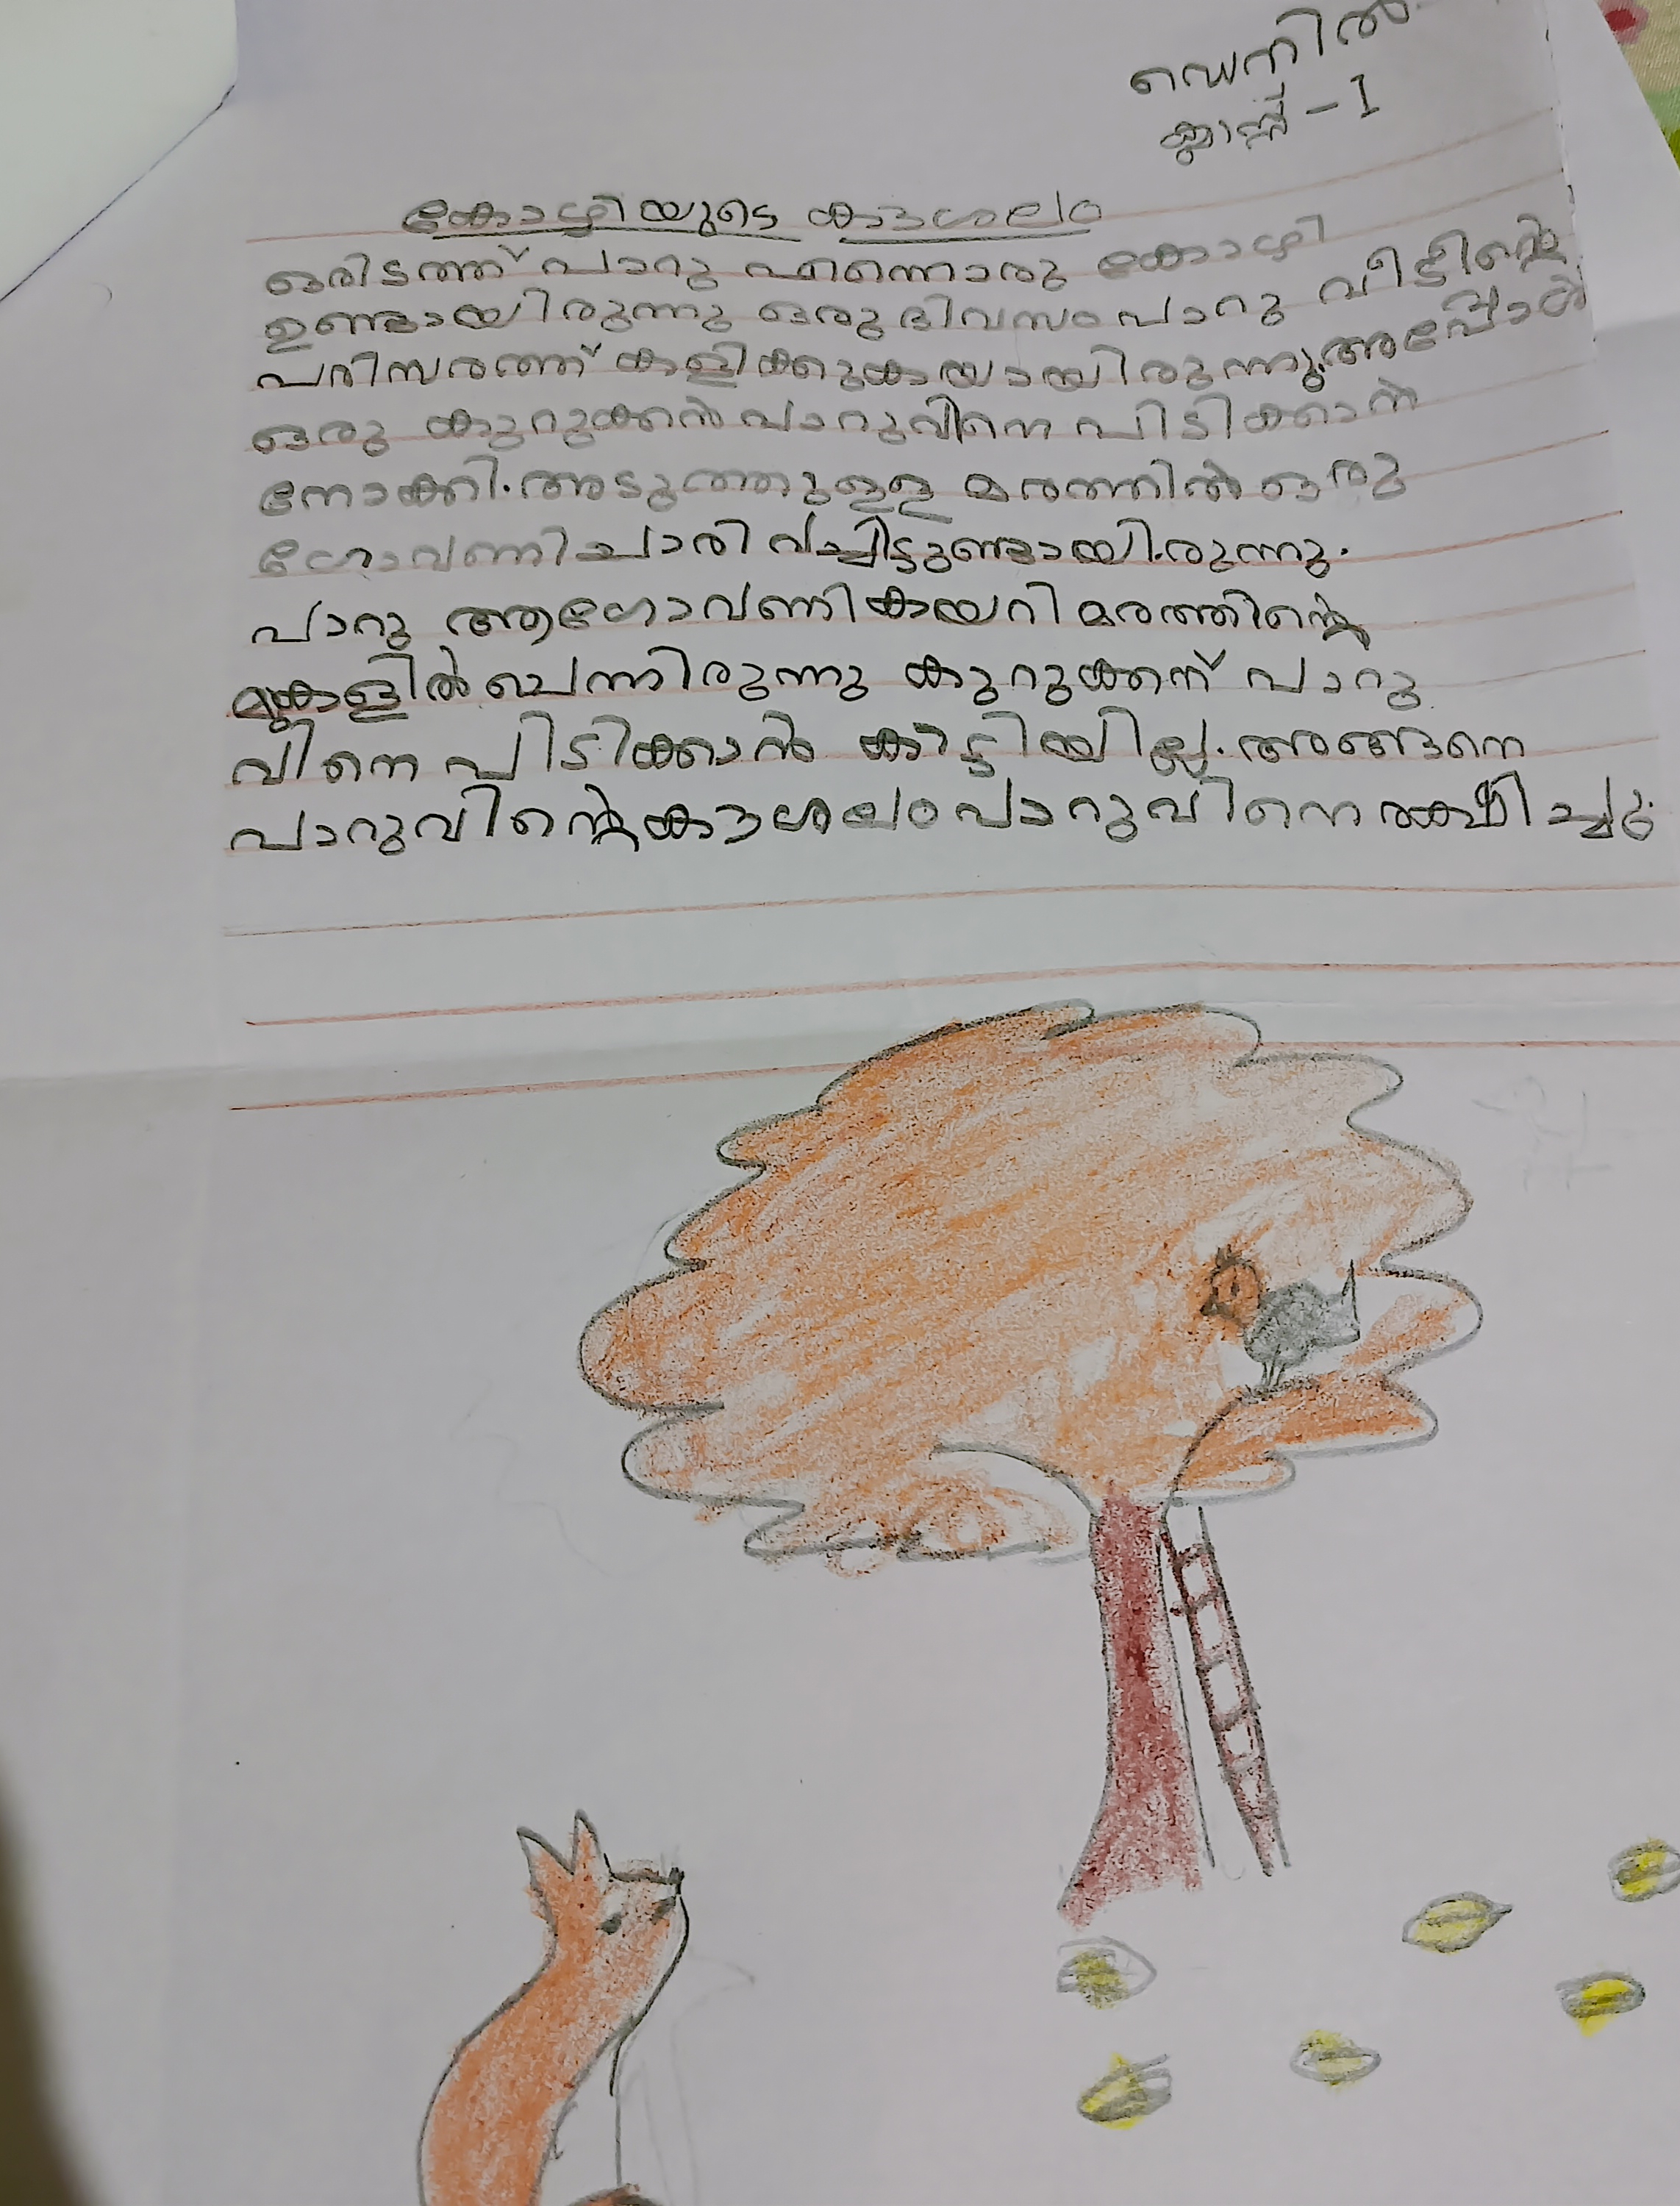 ഡെനിൽ
ക്ലാസ്സ് - 1
കോഴിയുടെ കൗശലം
ഒരിടത്ത് പാറു എന്നൊരു കോഴി
ഉണ്ടായിരുന്നു ഒരു ദിവസം പാറു വീട്ടിന്റെ
പരിസരത്ത് കളിക്കുകയായിരുന്നു. അപ്പോൾ
ഒരു കുറുക്കൻ പാറുവിനെ പിടിക്കാൻ
നോക്കി. അടുത്തുള്ള മരത്തിൽ ഒരു
ഗോവണി ചാരി വച്ചിട്ടുണ്ടായിരുന്നു.
പാറു ആ ഗോവണി കയറി മരത്തിന്റെ
മുകളിൽ ചെന്നിരുന്നു കുറുക്കന് പാറു
വിനെ പിടിക്കാൻ കിട്ടിയില്ല. അങ്ങനെ
പാറുവിന്റെ കൗശലം പാറുവിനെ രക്ഷിച്ചു.